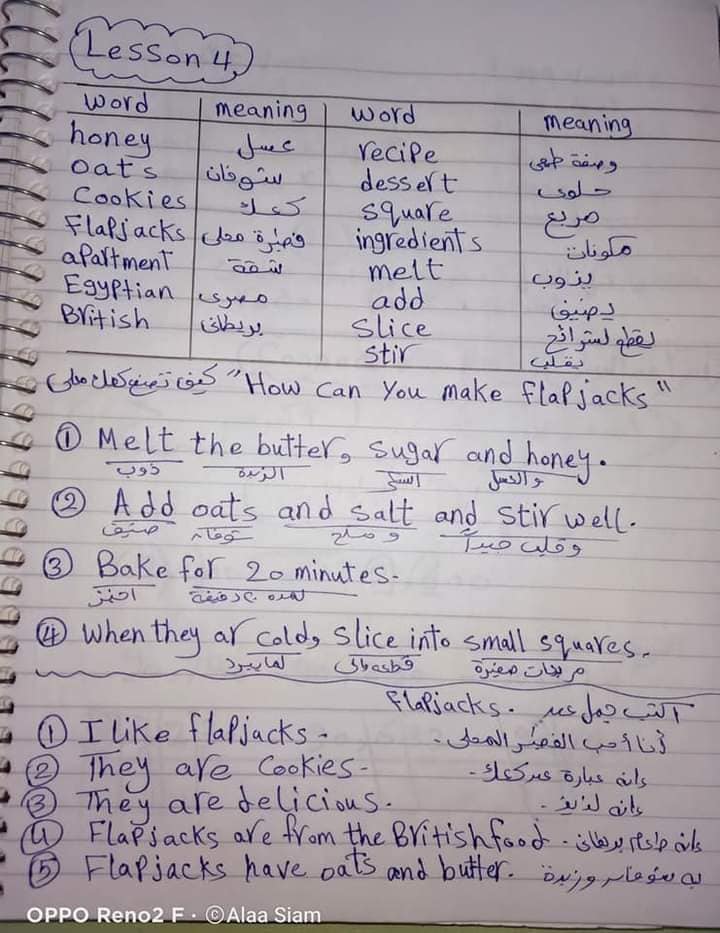 Lesson 4
word meaning word meaning
honey عسل recipe وصفة طهى
oats شوفان dessert حلوى
Cookies كعك square مربع
Flapjacks فطيرة محلى ingredients مكونات
apartment شقة melt يذوب
Egyptian مصرى add يضيف
British بريطانى Slice يقطع لشرائح
stir يقلب
كيف تصنع كعك محلى "How can you make flapjacks"
① Melt the butter, sugar and honey.
ذوب الزبدة السكر والعسل
② Add oats and salt and stir well.
ضيف شوفان وملح وقلب جيداً
③ Bake for 20 minutes.
اخبز لمده ٢٠ دقيقة
④ When they ar cold, slice into small squares.
لما يبرد قطعه الى مربعات صغيرة
اكتب جمل عن flapjacks.
① I like flapjacks. أنا أحب الفطير المحلى.
② They are cookies. إنه عبارة عن كعك.
③ They are delicious. إنه لذيذ.
④ Flapjacks are from the British food. إنه طعام بريطانى
⑤ Flapjacks have oats and butter. به شوفان وزبدة
OPPO Reno2 F · ©Alaa Siam